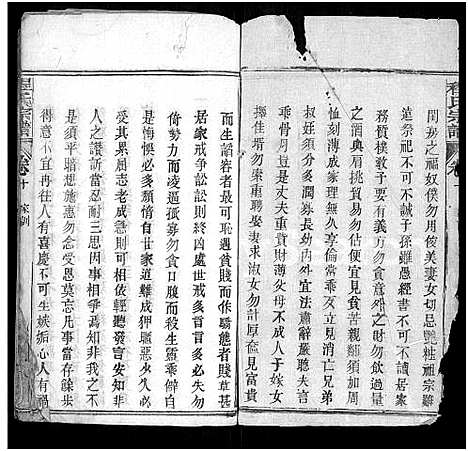 程氏宗譜 卷十
閨房之福奴僕勿用俊美妻女切忌艷粧祖宗雖
遠祭祀不可不誠子孫雖愚經書不可不讀居家
務質樸教子要有義方勿貪意外之財勿飲過量
之酒與肩挑貿易勿佔便宜見貧苦親鄰須多溫
恤刻薄成家理無久享倫常乖舛立見消亡兄弟
叔姪須多分潤寡長幼內外宜法肅辭嚴聽婦言
乖骨肉豈是丈夫重貲財薄父母不成人子嫁女
擇佳壻勿索重聘娶妻求淑女勿計厚奩見富貴
而生諂容者最可恥遇貧賤而作驕態者賤莫甚
居家戒爭訟訟則終凶處世戒多言言多必失勿
恃勢力而凌逼孤寡勿貪口腹而殺生靈乖僻自
是悔悞必多頹惰自甘家道難成狎昵惡少久必
受其累屈志老成急則可相倚輕聽發言安知非
人之譖訴當忍耐三思因事相爭焉知非我之不
是須平暗想施惠勿念受恩莫忘凡事當存餘步
得意不宜再往人有喜慶不可生嫉妬心人有禍
程氏宗譜 卷十 家訓